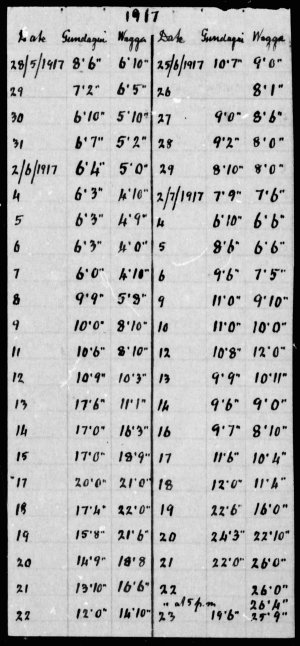 1917
Date Gundagai Wagga Date Gundagai Wagga
28/5/1917 8'6" 6'10" 25/6/1917 10'7" 9'0"
29 7'2" 6'5" 26 8'1"
30 6'10" 5'10" 27 9'0" 8'6"
31 6'7" 5'2" 28 9'2" 8'0"
2/6/1917 6'4" 5'0" 29 8'10" 8'0"
4 6'3" 4'10" 2/7/1917 7'9" 7'6"
5 6'3" 4'9" 4 6'10" 6'6"
6 6'3" 4'0" 5 8'6" 6'6"
7 6'0" 4'10" 6 9'6" 7'5"
8 9'9" 5'8" 9 11'0" 9'10"
9 10'0" 8'10" 10 11'0" 10'0"
11 10'6" 8'10" 12 10'8" 12'0"
12 10'9" 10'3" 13 9'9" 10'11"
13 17'6" 11'1" 14 9'6" 9'0"
14 17'0" 16'3" 16 9'7" 8'10"
15 17'0" 18'9" 17 11'6" 10'4"
17 20'0" 21'0" 18 12'0" 11'4"
18 17'4" 22'0" 19 22'6" 16'0"
19 15'8" 21'6" 20 24'3" 22'10"
20 14'9" 18'8 21 22'0" 26'0"
21 13'10" 16'6" 22 26'0"
" at 5 p.m 26'4"
22 12'0" 14'10" 23 19'6" 25'9"